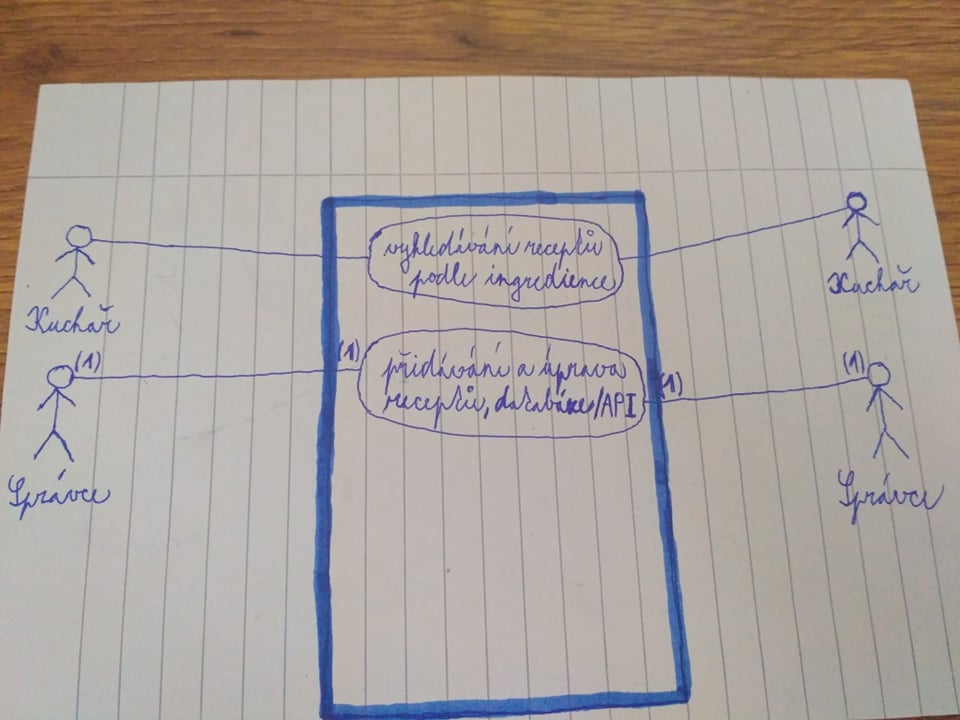 vyhledávání receptů
podle ingredience
Kuchař
Kuchař
(1)
(1)
přidávání a úprava
receptů, databáze/API
(1)
(1)
Správce
Správce